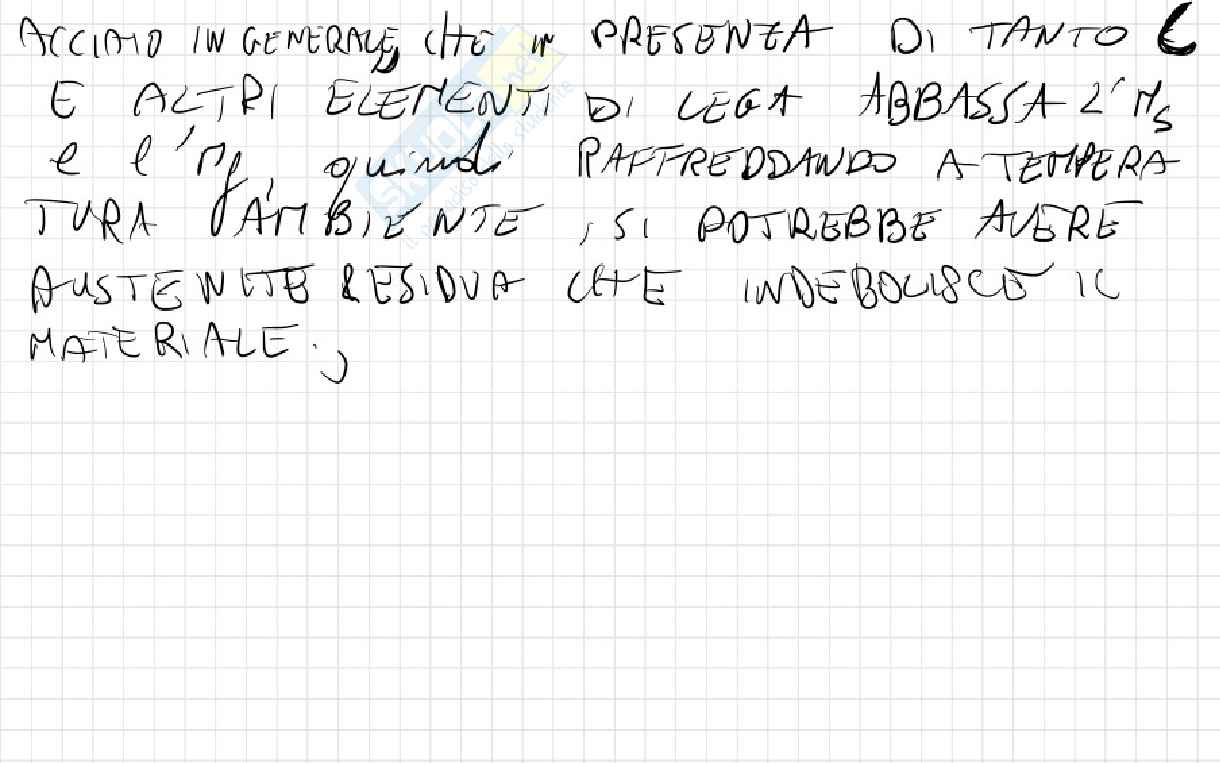 ACCIAIO IN GENERALE, CHE IN PRESENZA DI TANTO C
E ALTRI ELEMENTI DI LEGA ABBASSA L'Ms
e l'Mf, quindi RAFFREDDANDO A TEMPERA
TURA D'AMBIENTE, SI POTREBBE AVERE
AUSTENITE RESIDUA CHE INDEBOLISCE IL
MATERIALE.;
skuola.net